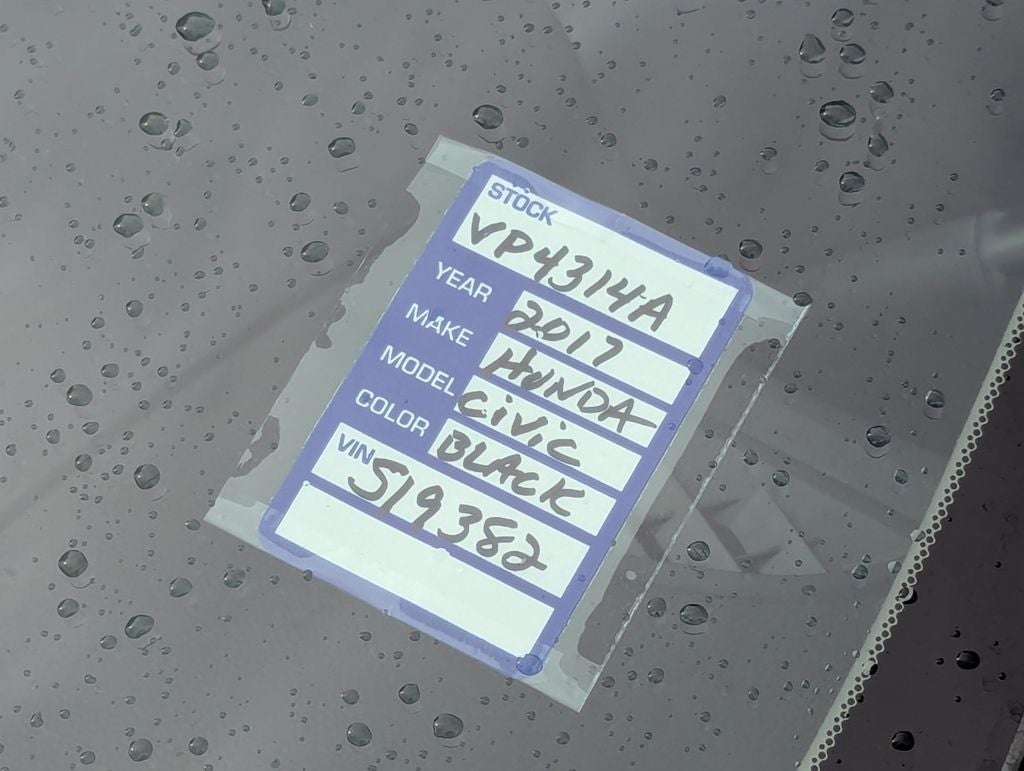 STOCK
VP4314A
YEAR 2017
MAKE HONDA
MODEL CiViC
COLOR BLACK
VIN S19382